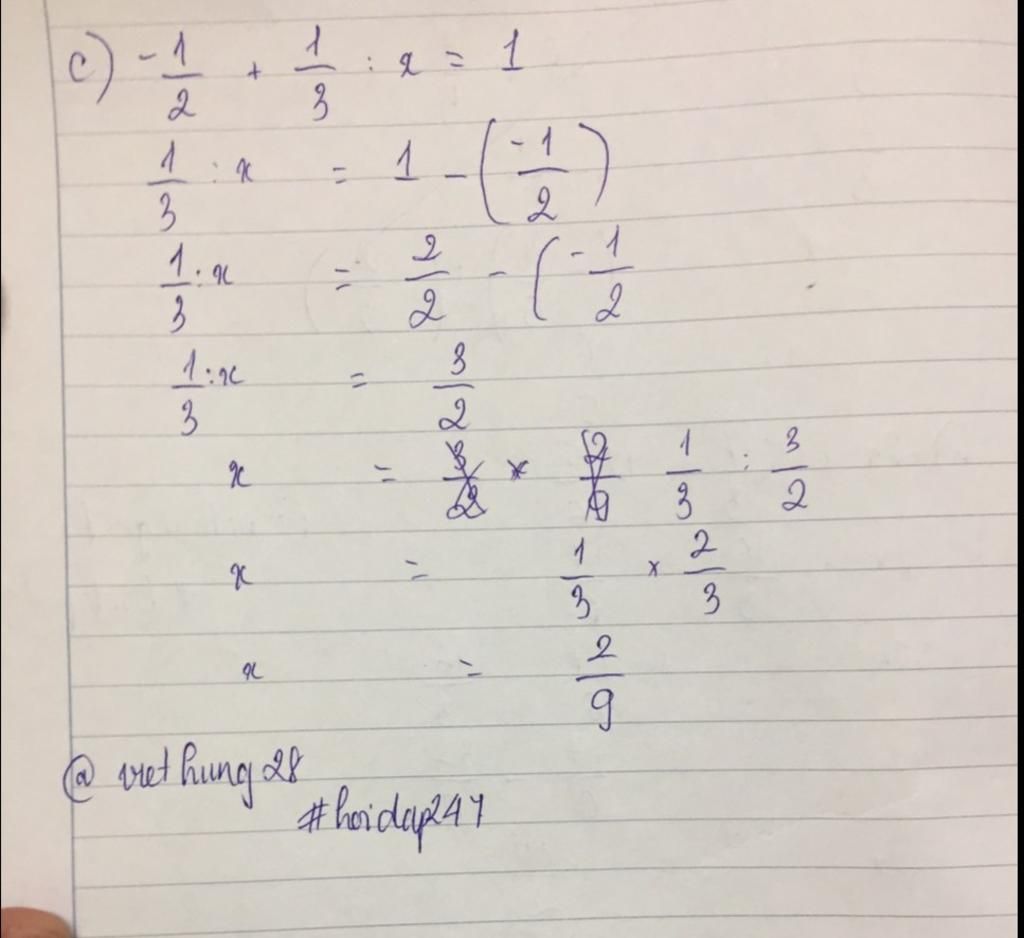 c) -1/2 + 1/3 : x = 1
1/3 : x = 1 - (-1/2)
1/3 : x = 2/2 - (-1/2
1/3 : x = 3/2
x = 1/3 : 3/2
x = 1/3 × 2/3
x = 2/9
@ viet hung 28
#hoidap247